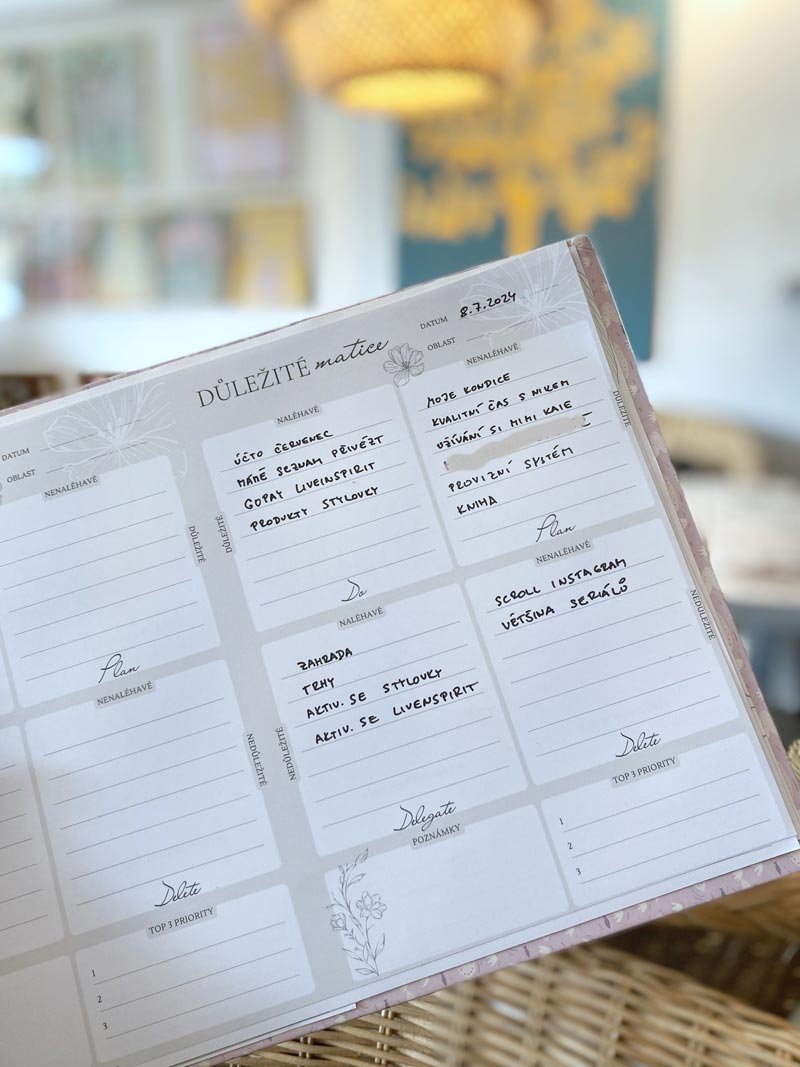 DATUM
OBLAST
NENALÉHAVÉ
DŮLEŽITÉ
Plan
NENALÉHAVÉ
NEDŮLEŽITÉ
Delete
TOP 3 PRIORITY
1
2
3
DŮLEŽITÉ matice
DATUM 8.7.2024
OBLAST
NALÉHAVÉ
DŮLEŽITÉ
ÚČTO ČERVENEC
MÁMĚ SEZNAM PŘIVÉZT
GOPAY LIVEINSPIRIT
PRODUKTY STYLOVKY
Do
NENALÉHAVÉ
DŮLEŽITÉ
MOJE KONDICE
KVALITNÍ ČAS S NIKEM
UŽÍVÁNÍ SI MIMI KAIE
PROVIZNÍ SYSTÉM
KNIHA
Plan
NALÉHAVÉ
NEDŮLEŽITÉ
ZAHRADA
TRHY
AKTIV. SE STYLOVKY
AKTIV. SE LIVENSPIRIT
Delegate
NENALÉHAVÉ
NEDŮLEŽITÉ
SCROLL INSTAGRAM
VĚTŠINA SERIÁLŮ
Delete
POZNÁMKY
TOP 3 PRIORITY
1
2
3